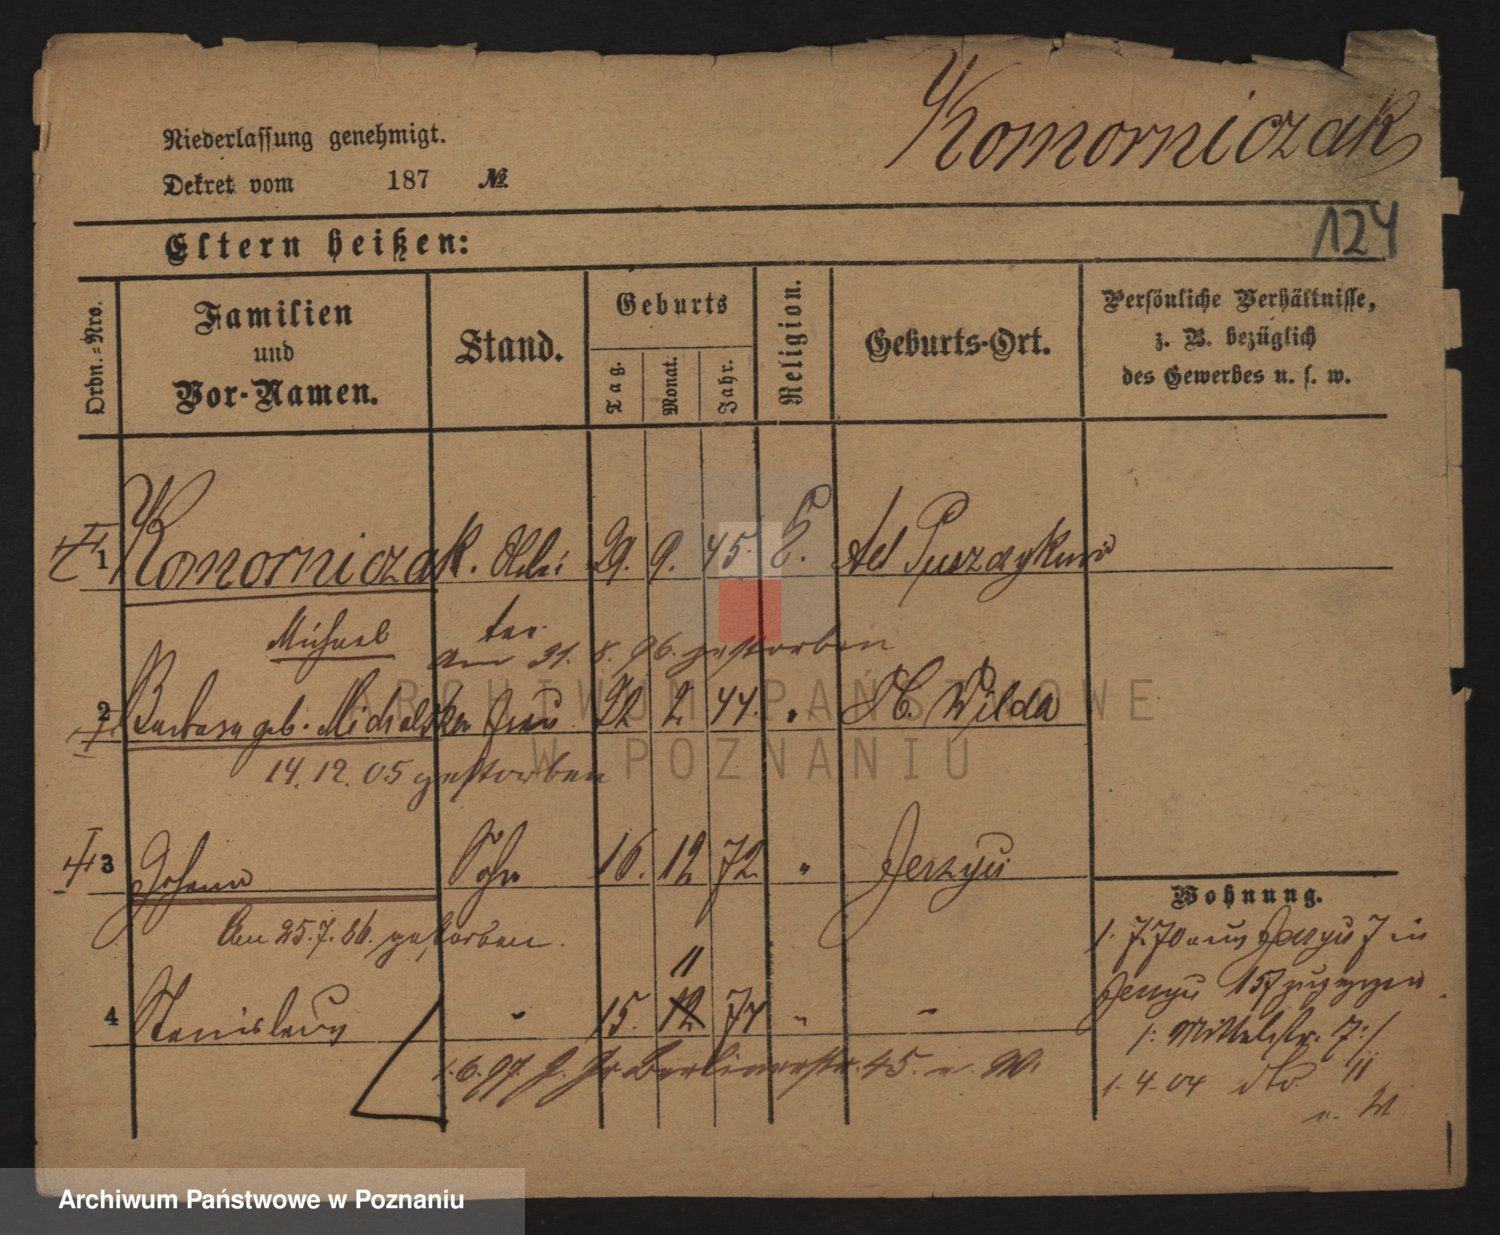 Komorniczak
Niederlassung genehmigt.
Dekret vom 187 №
124
Eltern heißen:
Ordn.-Nro.
Familien
und
Vor-Namen.
Stand.
Geburts
Tag.
Monat.
Jahr.
Religion.
Geburts-Ort.
Persönliche Verhältnisse,
z. B. bezüglich
des Gewerbes u. s. w.
1 Komorniczak. 29. 9. 45.
Michael
am 31. 8. 96. gestorben
2 Barbara geb. Michalska Frau 22 2 44. " St. Wilda
14. 12. 05 gestorben
3 Johann Sohn 16. 12 72. " Jerzyce
Am 25. 7. 86. gestorben.
11
4 Stanislaus " 15. 12 74 " "
1. 6. 97. Berlinerstr. 45.
Wohnung.
1. 7. 70 aus Jerzyce 7 in
Jerzyce 157 zugezogen
/: Mittelstr. 7 :/
1. 4. 04 dto 11
ARCHIWUM PAŃSTWOWE
W POZNANIU
Archiwum Państwowe w Poznaniu